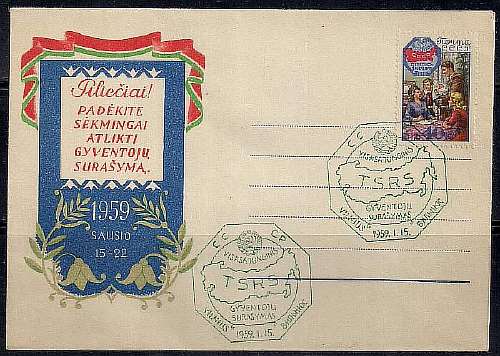 Piliečiai!
PADĖKITE
SĖKMINGAI
ATLIKTI
GYVENTOJŲ
SURAŠYMĄ.
1959
SAUSIO
15-22
40
СССР
VISASĄJUNGINIS
TSRS
GYVENTOJŲ
SURAŠYMAS
1959.I.15.
VILNIUS
СССР
VISASĄJUNGINIS
TSRS
GYVENTOJŲ
SURAŠYMAS
1959.I.15.
VILNIUS